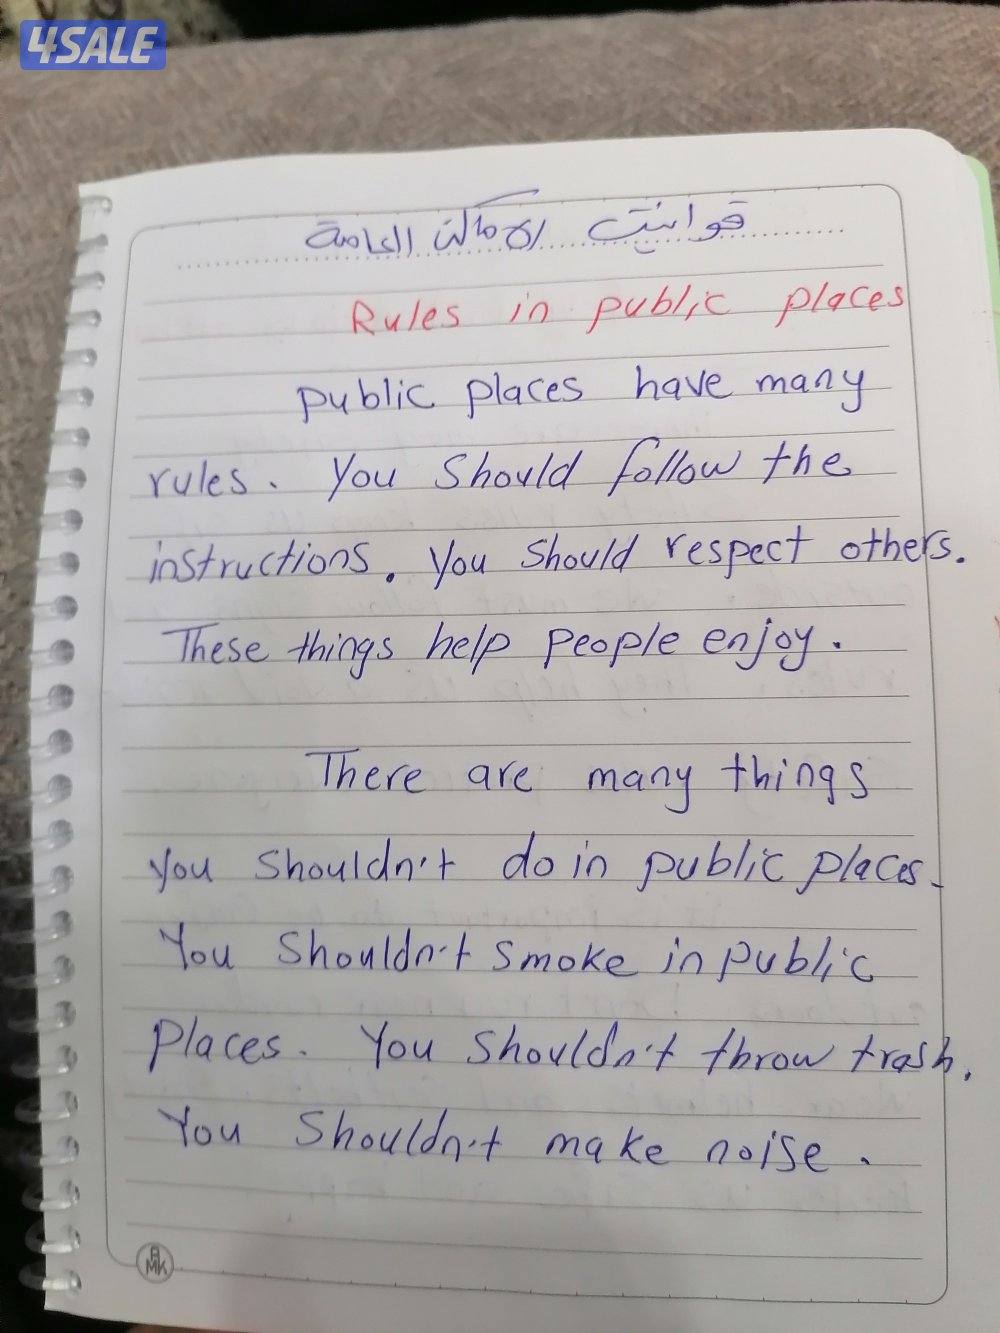 4SALE
قوانين الاماكن العامة
Rules in public places
public places have many
rules. You Should follow the
instructions. You Should respect others.
These things help people enjoy.
There are many things
you Shouldn't do in public places.
You Shouldn't smoke in public
places. You Shouldn't throw trash.
You Shouldn't make noise.
AMK